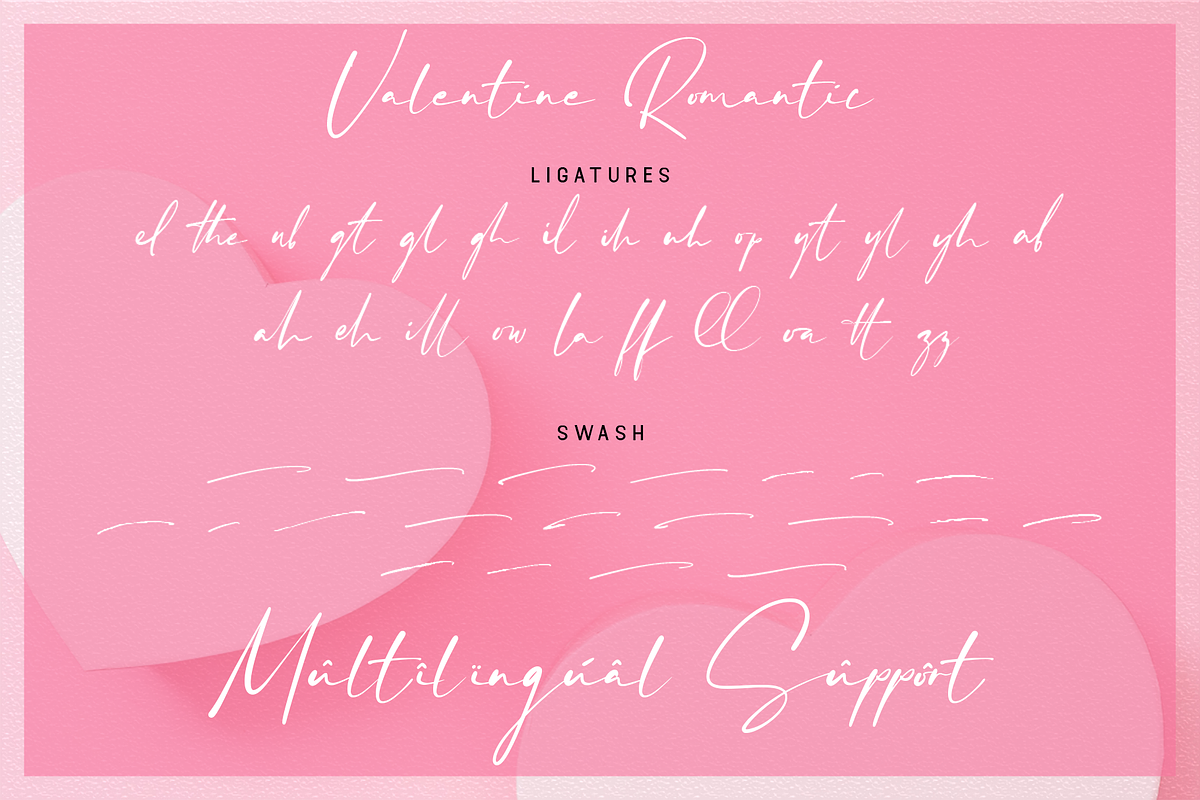 Valentine Romantic
LIGATURES
el the ub gt gl gh il ih uh op yt yl yh ab
ah eh ill ow la ff ll oa tt zz
SWASH
Mûltîlïngúâl Sûppôrt